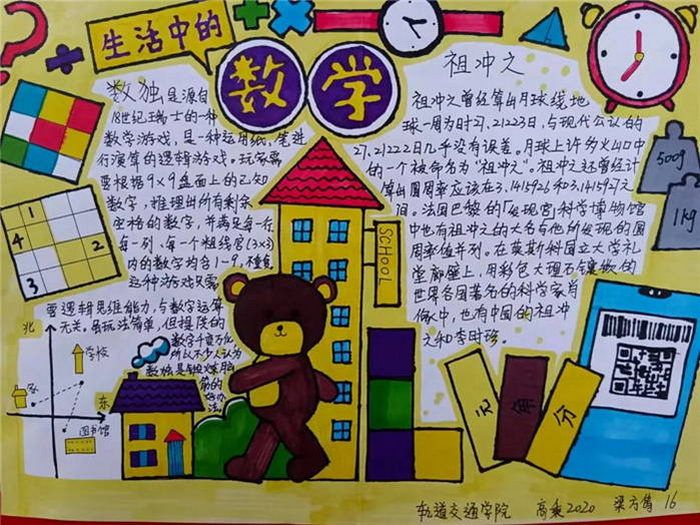 生活中的
数学
数独是源自
18世纪瑞士的一种
数学游戏,是一种运用纸、笔进
行演算的逻辑游戏。玩家需
要根据9×9盘面上的已知
数字,推理出所有剩余
空格的数字,并满足每一行
每一列、每一个粗线宫(3×3)
内的数字均含1-9,不重复
这种游戏只需
要逻辑思维能力,与数字运算
无关。虽玩法简单,但提供的
数字千变万化
所以不少人认为
数独是锻炼脑
筋的
好办
法。
祖冲之
祖冲之曾经算出月球绕地
球一周为时27.21223日,与现代公认的
27.21222日几乎没有误差。月球上许多火山口中
的一个被命名为“祖冲之”。祖冲之还曾经计
算出圆周率应该在3.1415926和3.1415927之
间。法国巴黎的「发现宫」科学博物馆
中也有祖冲之的大名与他所发现的圆
周率值并列。在莫斯科国立大学礼
堂廊壁上,用彩色大理石镶嵌的
世界各国著名的科学家肖
像中,也有中国的祖冲
之和李时珍。
1
4
2
3
SCHOOL
500g
1kg
北
学校
家
东
图书馆
元
角
分
轨道交通学院 高乘2020 梁方倩 16